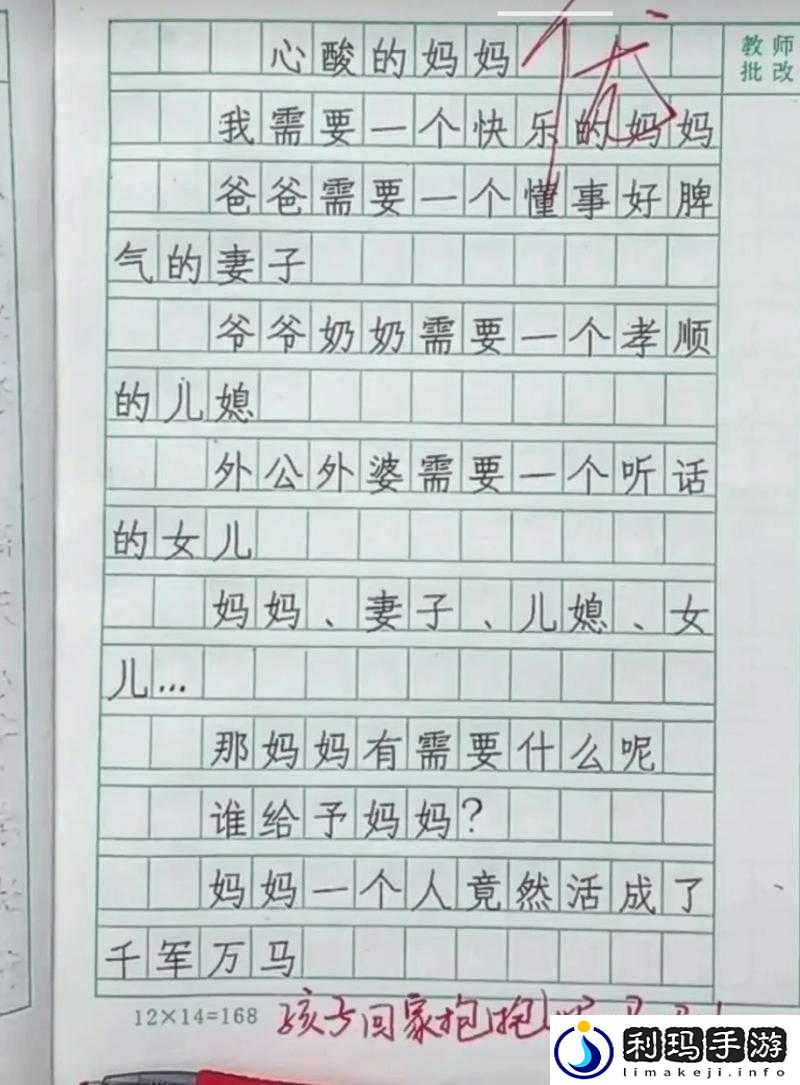 心酸的妈妈
优
教师
批改
我需要一个快乐的妈妈
爸爸需要一个懂事好脾
气的妻子
爷爷奶奶需要一个孝顺
的儿媳
外公外婆需要一个听话
的女儿
妈妈、妻子、儿媳、女
儿...
那妈妈有需要什么呢
谁给予妈妈?
妈妈一个人竟然活成了
千军万马
12×14=168
孩子回家抱抱
利玛手游
limakeji.info